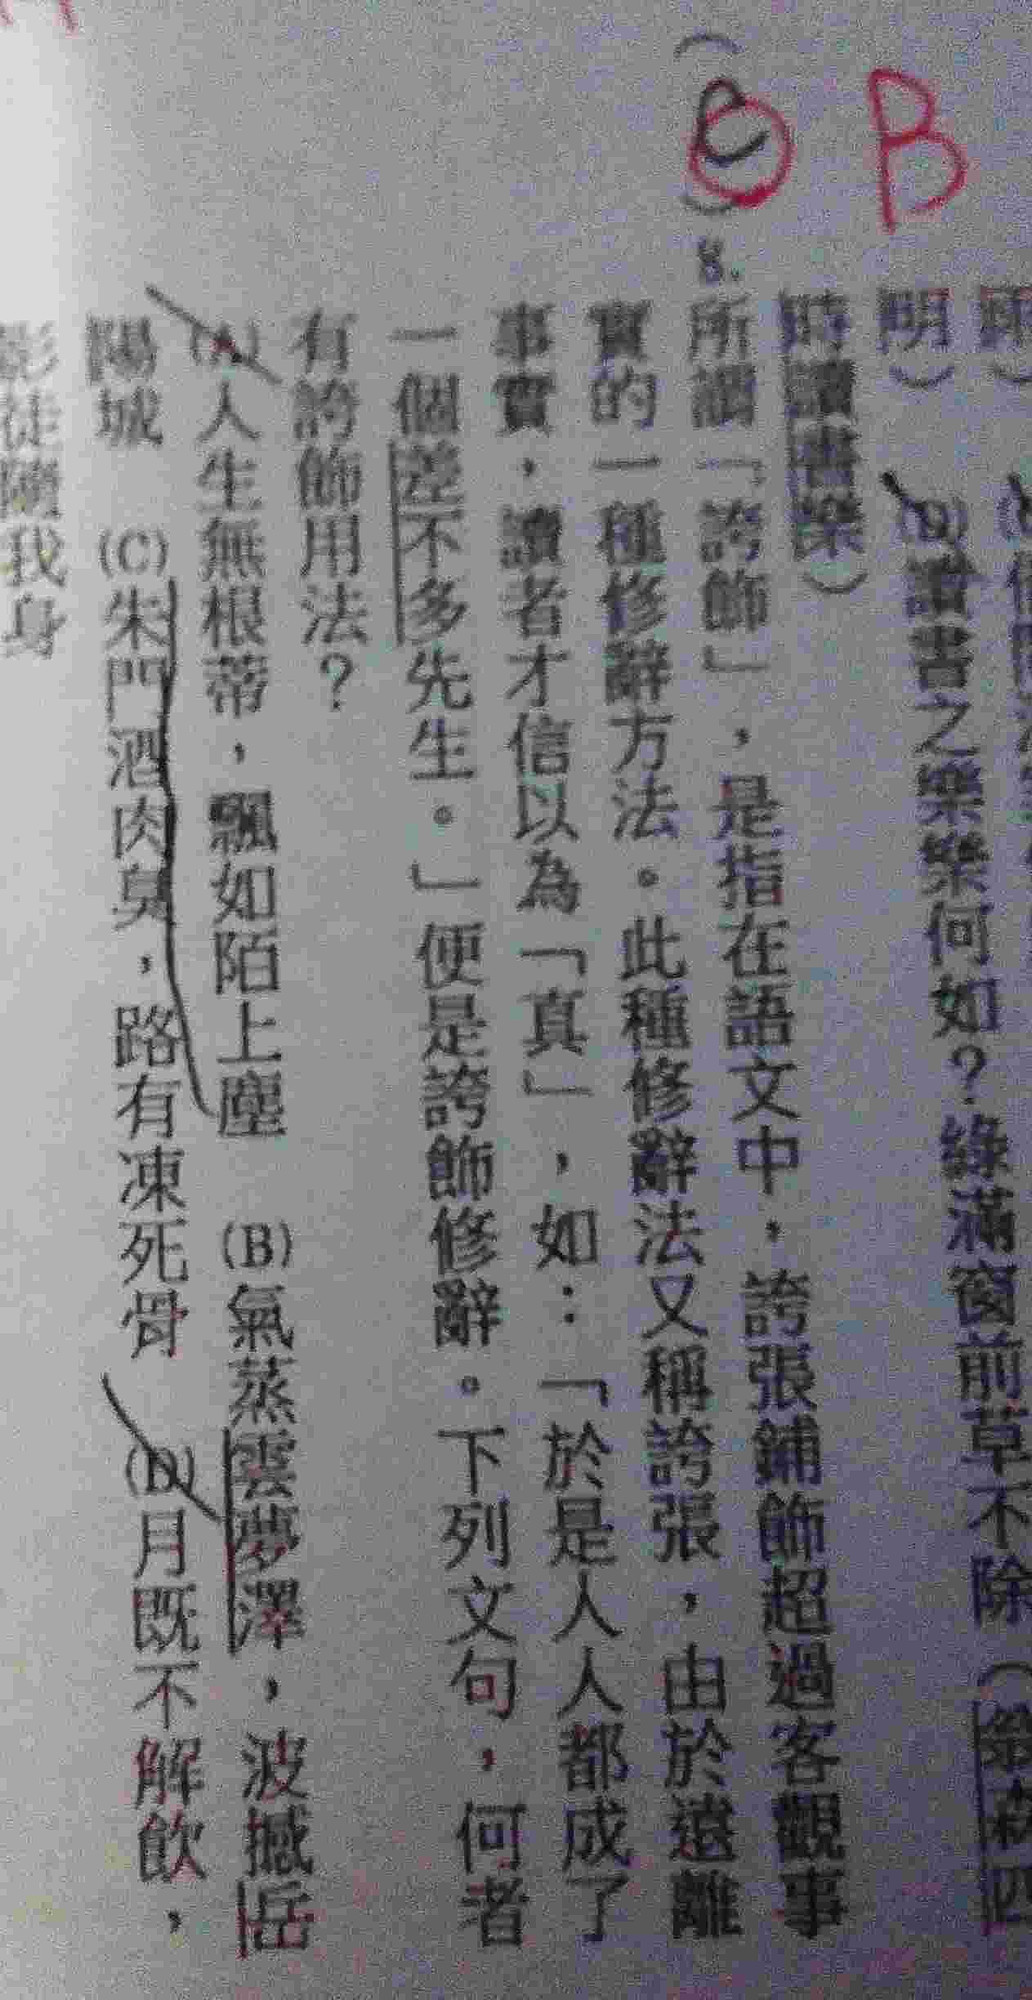 B
明）　(D)讀書之樂樂何如？綠滿窗前草不除（翁森四
時讀書樂）
（C）8.所謂「誇飾」，是指在語文中，誇張鋪飾超過客觀事
實的一種修辭方法。此種修辭法又稱誇張，由於遠離
事實，讀者才信以為「真」，如：「於是人人都成了
一個差不多先生。」便是誇飾修辭。下列文句，何者
有誇飾用法？
(A)人生無根蒂，飄如陌上塵　(B)氣蒸雲夢澤，波撼岳
陽城　(C)朱門酒肉臭，路有凍死骨　(D)月既不解飲，
影徒隨我身